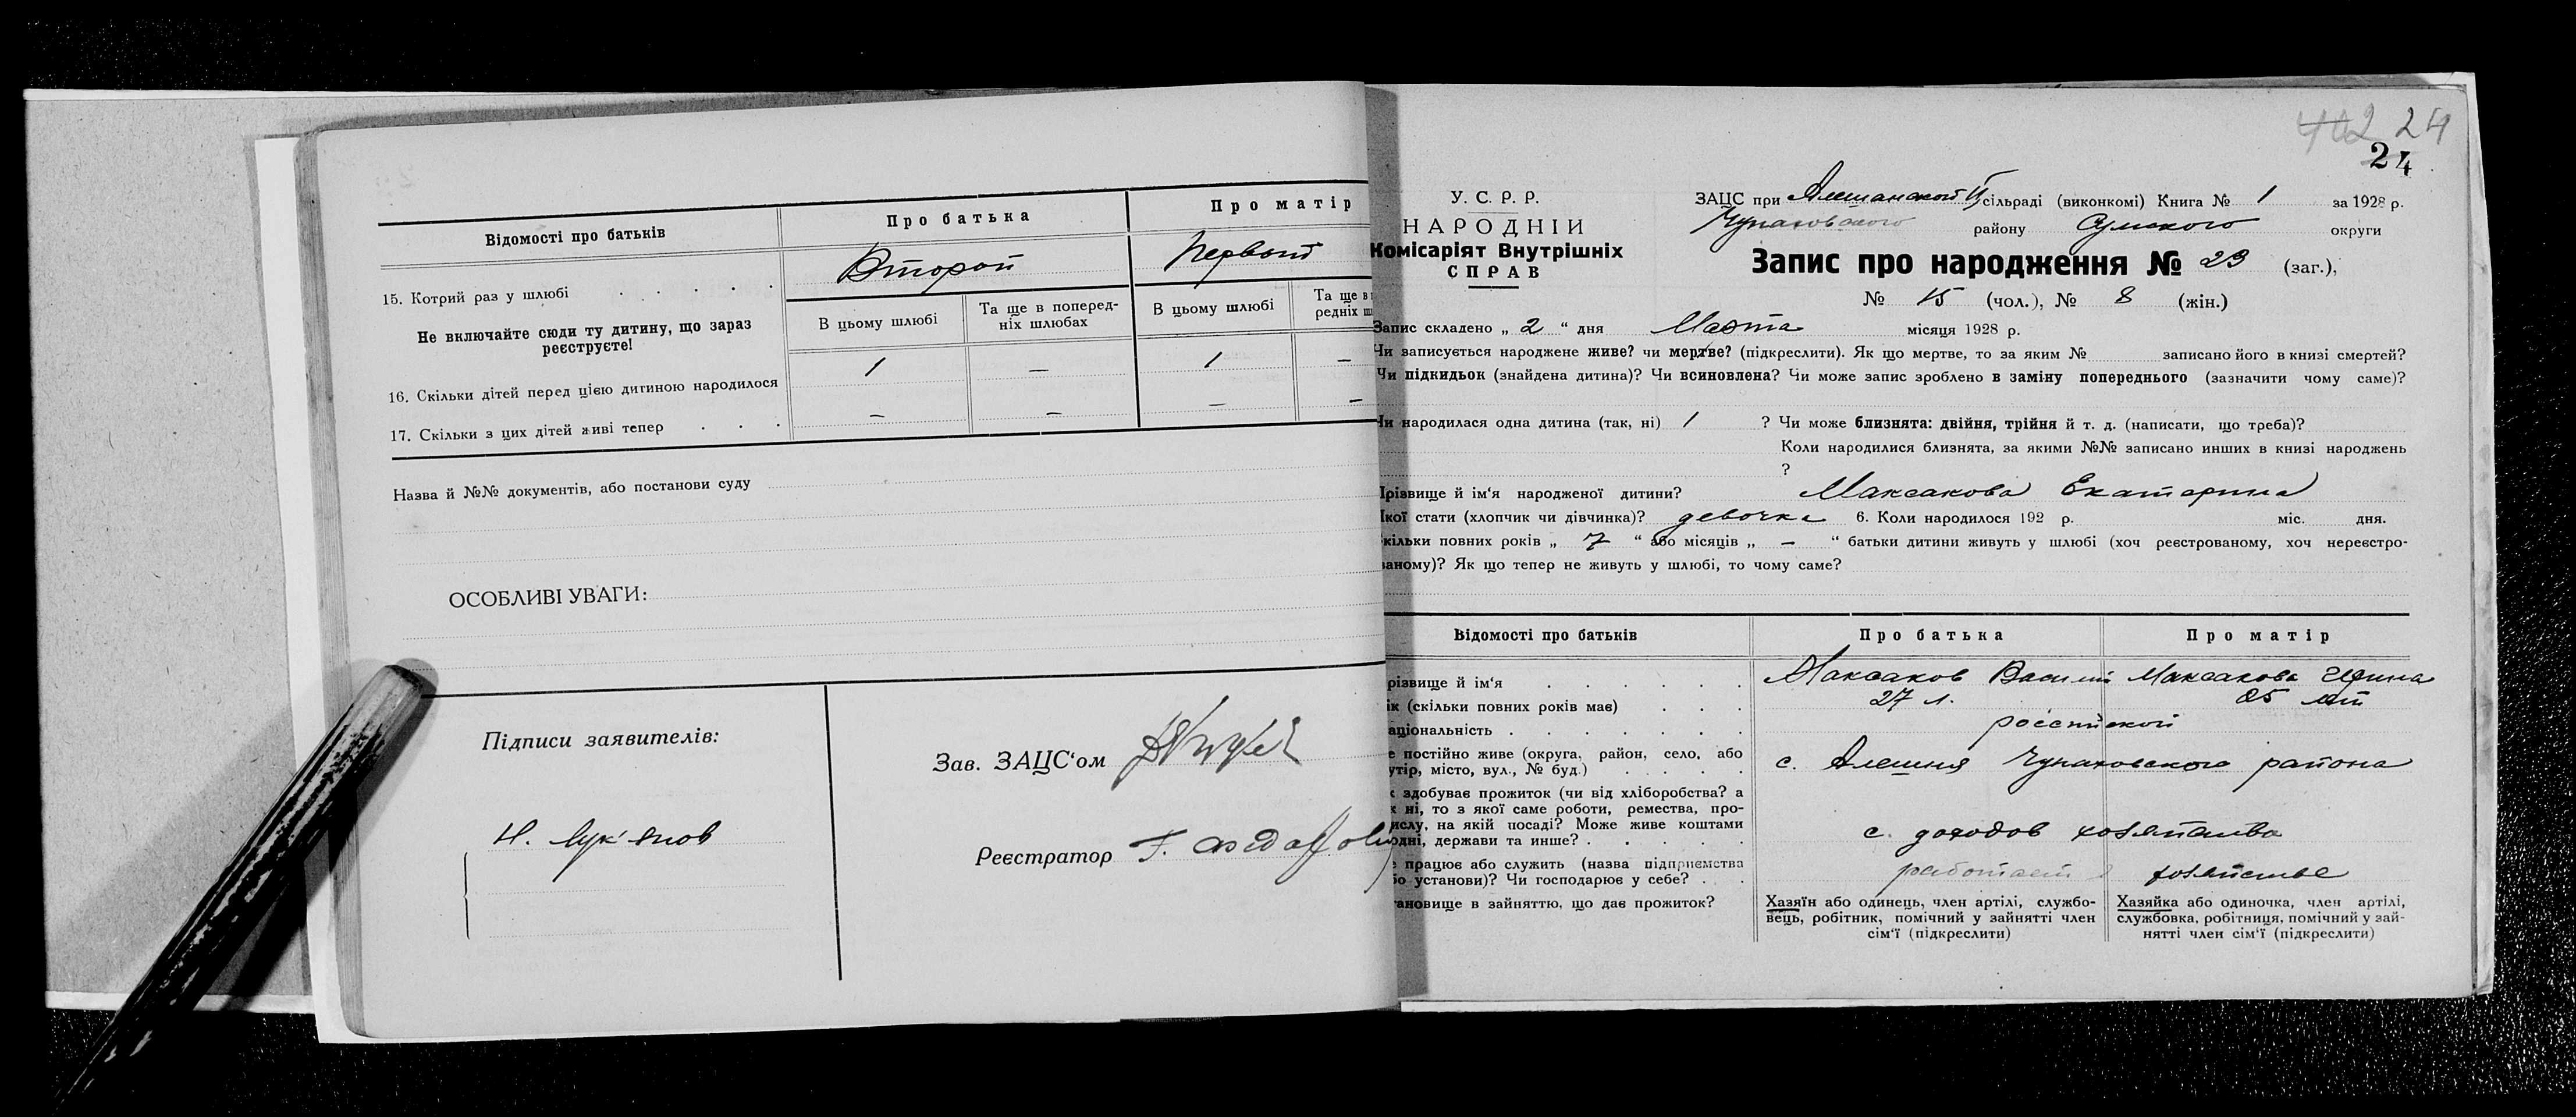 Відомості про батьків
Про батька
Про матір
15. Котрий раз у шлюбі
Второй
Первый
Не включайте сюди ту дитину, що зараз реєструєте!
В цьому шлюбі
Та ще в поперед-
ніх шлюбах
В цьому шлюбі
Та ще в
редніх ш
16. Скільки дітей перед цією дитиною народилося
1 — 1 —
17. Скільки з цих дітей живі тепер
— — — —
Назва й №№ документів, або постанови суду
ОСОБЛИВІ УВАГИ:
Підписи заявителів:
Н. Лук'янов
Зав. ЗАЦС'ом
Реєстратор
402 24
24
У. С. Р. Р.
НАРОДНІЙ
Комісаріят Внутрішніх
СПРАВ
ЗАЦС при Алешанской сільраді (виконкомі) Книга № 1 за 1928 р.
Чупаховского району Сумского округи
Запис про народження № 23 (заг.),
№ 15 (чол.), № 8 (жін.)
Запис складено „ 2 “ дня Марта місяця 1928 р.
Чи записується народжене живе? чи мертве? (підкреслити). Як що мертве, то за яким № записано його в книзі смертей?
Чи підкидьок (знайдена дитина)? Чи всиновлена? Чи може запис зроблено в заміну попереднього (зазначити чому саме)?
Чи народилася одна дитина (так, ні) 1 ? Чи може близнята: двійня, трійня й т. д. (написати, що треба)?
Коли народилися близнята, за якими №№ записано инших в книзі народжень
?
Прізвище й ім'я народженої дитини? Максакова Екатерина
Якої стати (хлопчик чи дівчинка)? девочка 6. Коли народилося 192 р. міс. дня.
кільки повних років „ 7 “ або місяців „ — “ батьки дитини живуть у шлюбі (хоч реєстрованому, хоч нереєстро-
ваному)? Як що тепер не живуть у шлюбі, то чому саме?
Відомості про батьків
Про батька
Про матір
різвище й ім'я
Максаков Василий
Максакова Ирина
ік (скільки повних років має)
27 л.
25 лет
аціональність
российской
е постійно живе (округа, район, село, або
утір, місто, вул., № буд.)
с. Алешня Чупаховского района
к здобуває прожиток (чи від хліборобства? а
к ні, то з якої саме роботи, ремества, про-
ислу, на якій посаді? Може живе коштами
одні, держави та инше?
с доходов хозяйства
е працює або служить (назва підприємства
бо установи)? Чи господарює у себе?
работает в хозяйстве
тановище в зайняттю, що дає прожиток?
Хазяїн або одинець, член артілі, службо-
вець, робітник, помічний у зайнятті член
сім'ї (підкреслити)
Хазяйка або одиночка, член артілі,
службовка, робітниця, помічний у зай-
нятті член сім'ї (підкреслити)